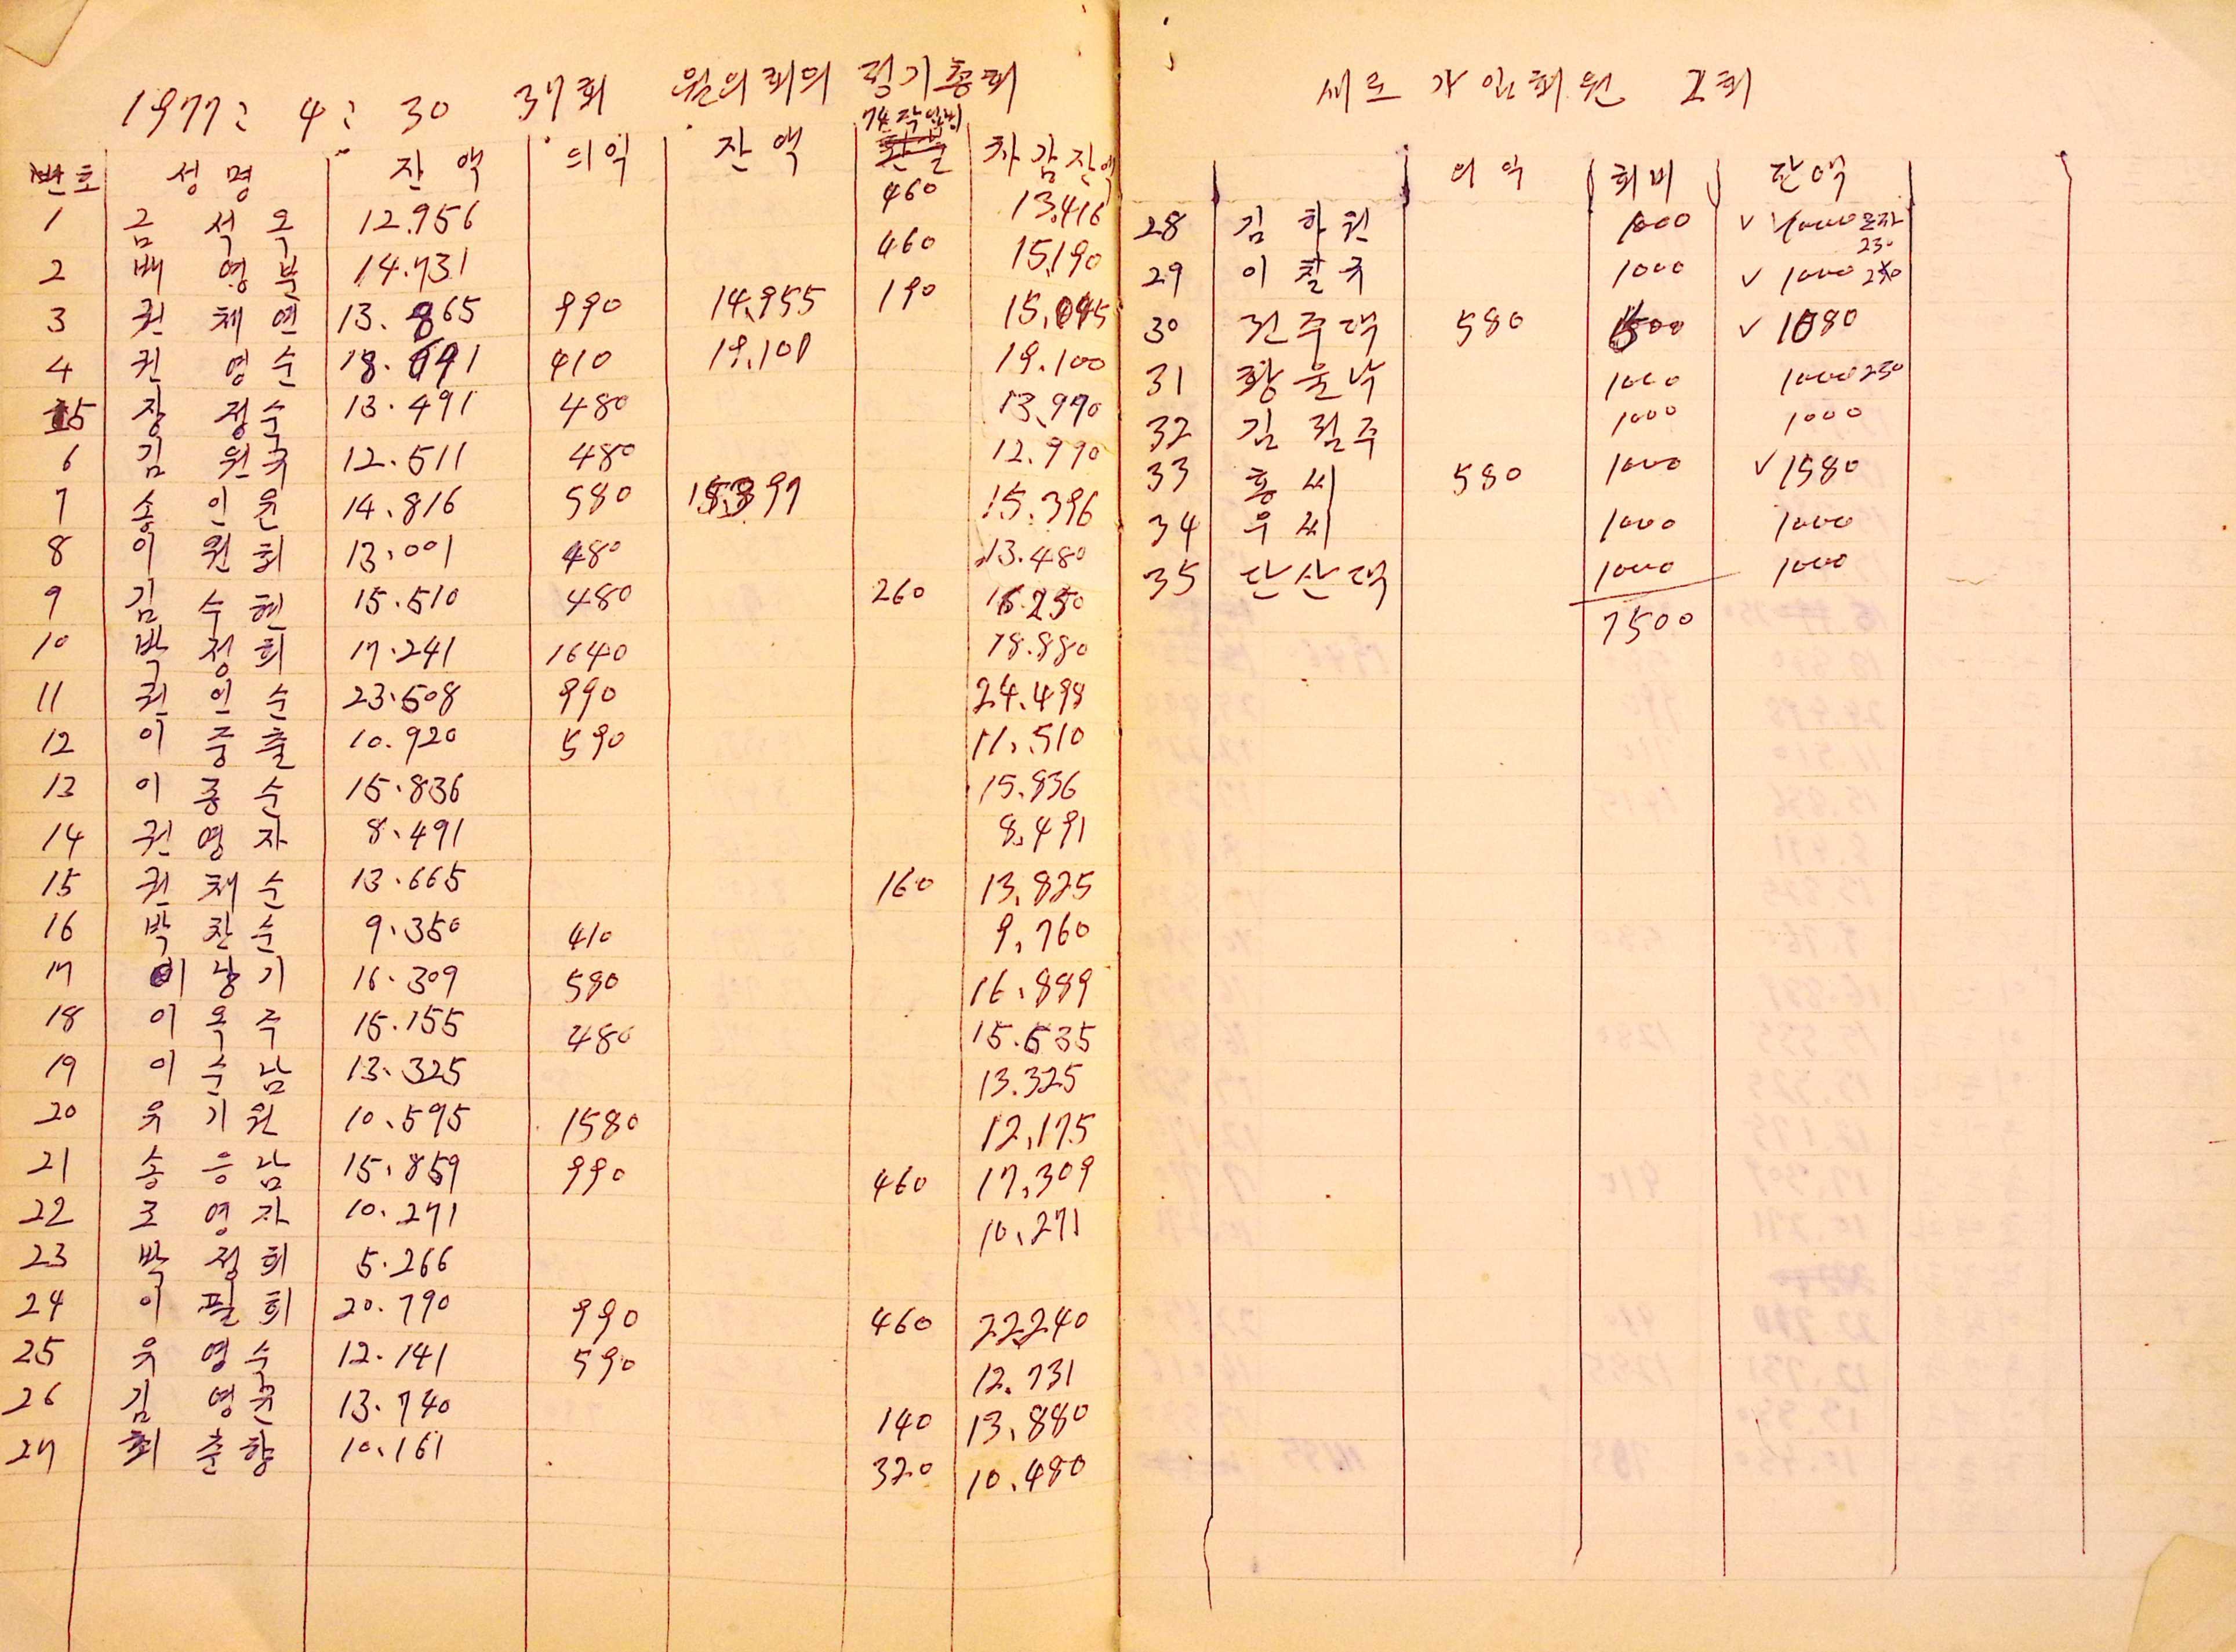 1977: 4: 30 37회 월의회의 정기총회
번호 성명 잔액 의익 잔액 74작업비 차감잔액
1 금석옥 12.956 460 13.416
2 배영분 14.731 460 15.190
3 권체연 13.865 990 14.955 190 15.045
4 권영순 18.691 410 19.101 19.100
5 장정순 13.491 480 13.970
6 김원국 12.511 480 12.990
7 송인윤 14.816 580 15.397 15.396
8 이원희 13.001 480 13.480
9 김수현 15.510 480 260 16.250
10 박정희 17.241 1640 18.880
11 권인순 23.508 990 24.498
12 이중출 10.920 590 11.510
13 이종순 15.836 15.836
14 권영자 8.491 8.491
15 권채순 13.665 160 13.825
16 박찬순 9.350 410 9.760
17 이낭기 16.309 580 16.889
18 이옥주 15.155 480 15.635
19 이순남 13.325 13.325
20 우기원 10.595 1580 12.175
21 송응남 15.859 990 460 17.309
22 조영자 10.271 10.271
23 박정희 5.266
24 이필희 20.790 990 460 22.240
25 우영수 12.141 590 12.731
26 김영준 13.740 140 13.880
27 최춘향 10.161 320 10.480
새로 가입회원 2회
의익 회비 잔액
28 김학원 1000 ✓ 1000 230
29 이찰국 1000 ✓ 1000 250
30 전주댁 580 500 ✓ 1080
31 황운낙 1000 1000 250
32 김점주 1000 1000
33 홍씨 580 1000 ✓ 1580
34 우씨 1000 1000
35 단산댁 1000 1000
7500